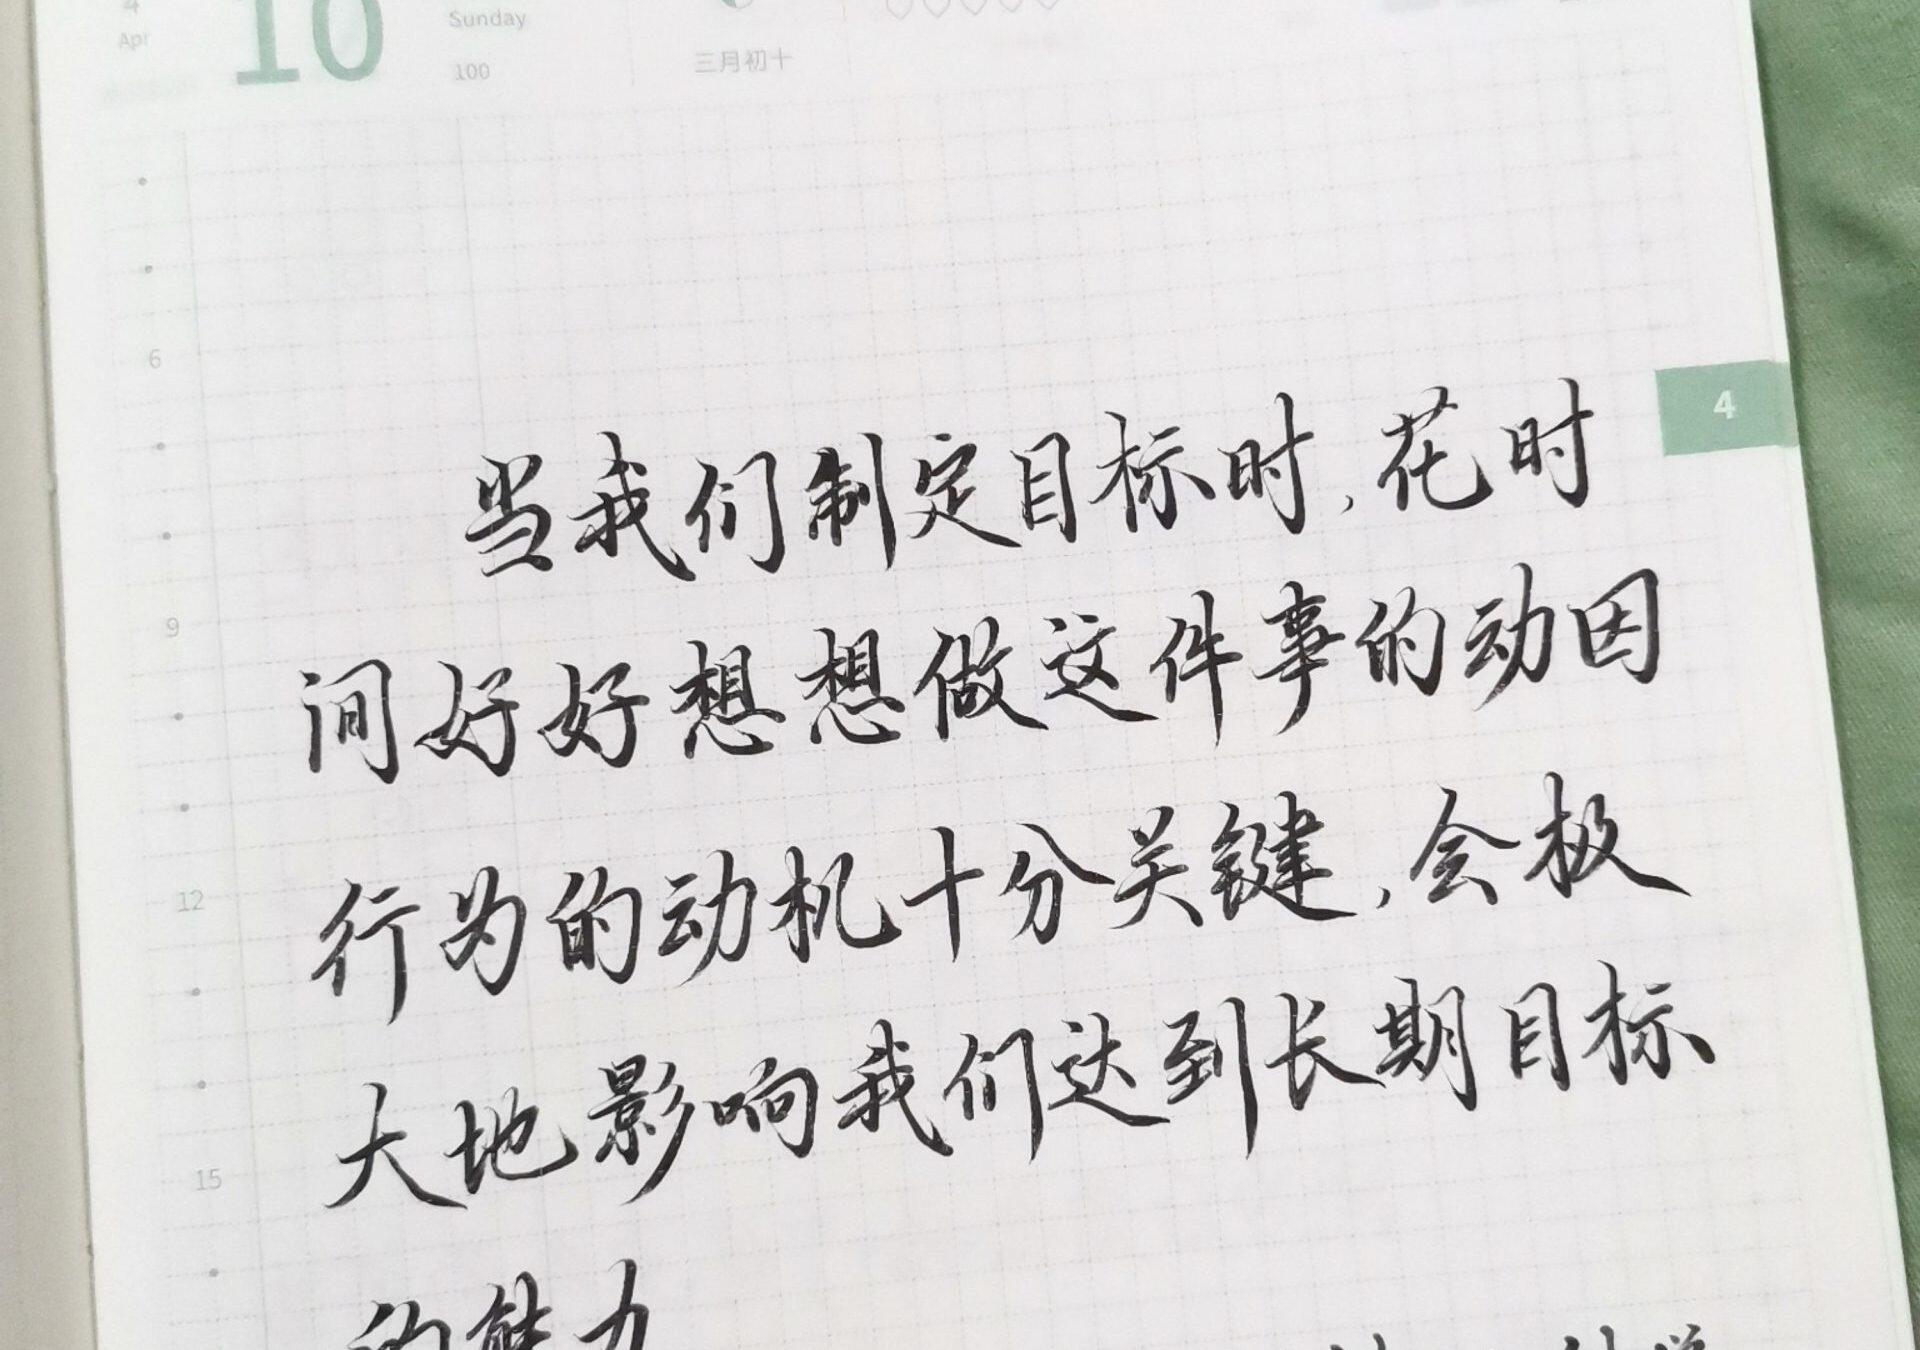 4
Apr
10
Sunday
100
三月初十
4
6
9
12
15
当我们制定目标时,花时
间好好想想做这件事的动因
行为的动机十分关键,会极
大地影响我们达到长期目标
的能力